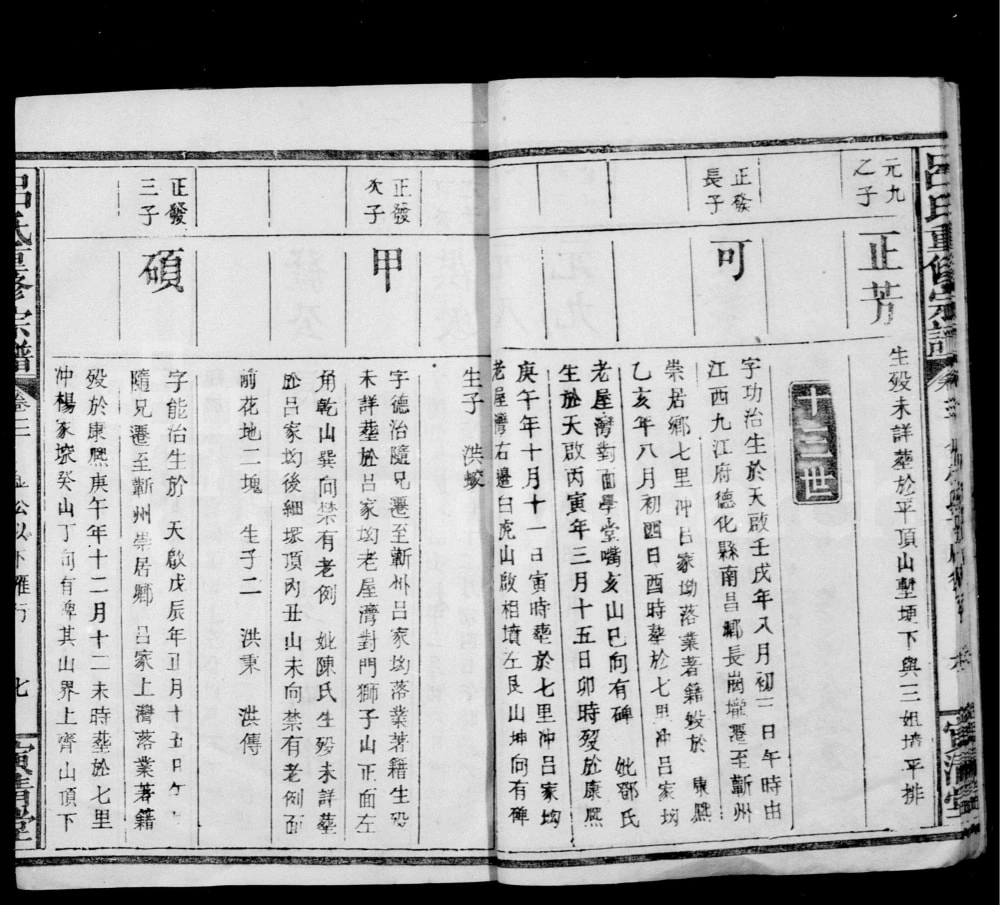 呂氏重修宗譜
元九
之子
正芳
生殁未詳塟於平頂山塹埂下與三姐墳平排
十三世
正發
長子
可
字功治生於天啟壬戌年八月初二日午時由
江西九江府德化縣南昌鄉長崗壠遷至蘄州
崇居鄉七里冲呂家坳落業著籍殁於 康熙
乙亥年八月初四日酉時塟於七里冲呂家坳
老屋灣對面學堂嘴亥山巳向有碑 妣鄧氏
生於天啟丙寅年三月十五日卯時殁於康熙
庚午年十月十一日寅時塟於七里冲呂家坳
老屋灣右邊白虎山啟相墳左艮山坤向有碑
生子 洪蛟
正發
次子
甲
字德治隨兄遷至蘄州呂家坳落業著籍生殁
未詳塟於呂家坳老屋灣對門獅子山正面左
角乾山巽向禁有老例 妣陳氏生殁未詳塟
於呂家坳後細塚頂內丑山未向禁有老例面
前花地二塊 生子二 洪秉 洪傳
正發
三子
碩
字能治生於 天啟戊辰年正月十五日午
隨兄遷至蘄州崇居鄉 呂家上灣落業著籍
殁於康熙庚午年十二月十二未時塟於七里
冲楊家墩癸山丁向有碑其山界上齊山頂下
呂氏重修宗譜 卷三 公以下雁行 七